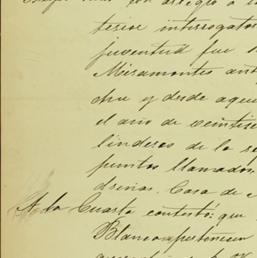 por arreglo a l
terior interrogator
juventud fue
Miramontes ant
che y desde aque
el año de veintise
linderos de la
puntos llamados
dreñas. Casa de
A la Cuarta contestó: que
Blanco